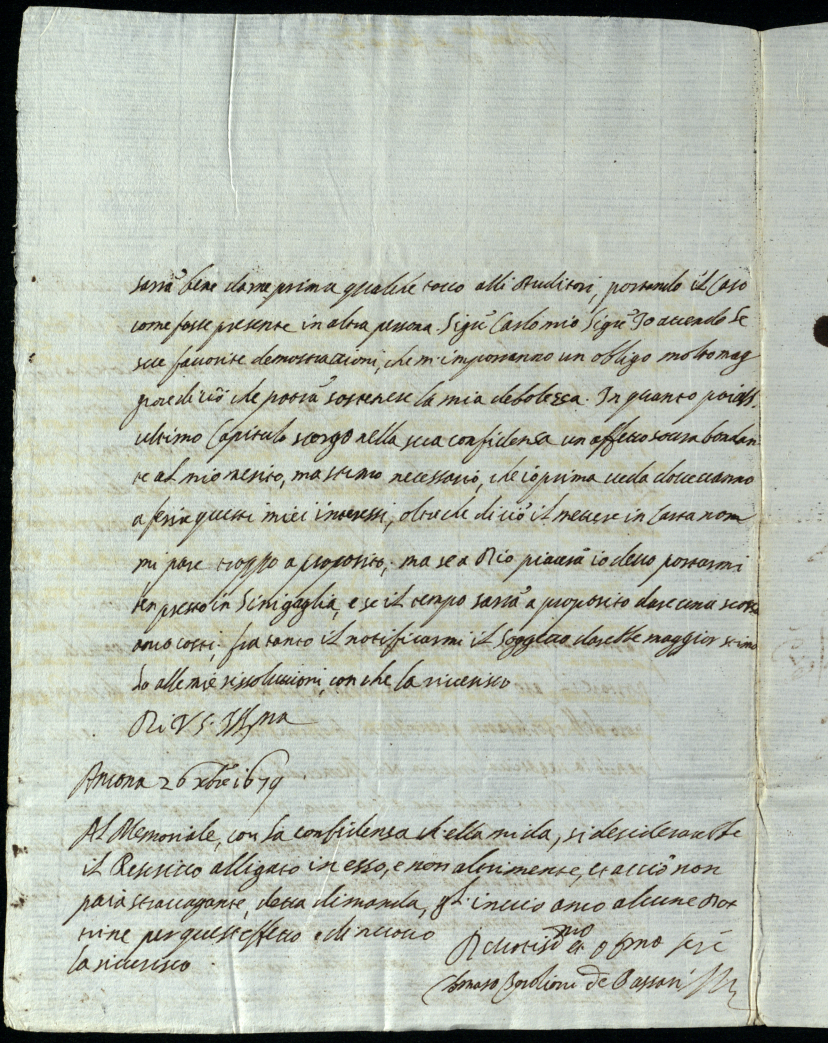 sarrà bene darne prima qualche tocco alli Auditori, portando il Caso
come fosse presente in altra persona. Sigre Carlo mio Sigre Io attendo le
sue favorite demostrazioni, che m'imporranno un obligo molto mag
giore di ciò che potrà sostenere la mia debolezza. In quanto poi all'
ultimo Capitulo scorgo nella sua confidenza un affetto sovra bondan
te al mio merito, ma stimo necessario, che io prima veda dove vanno
a ferir questi miei interessi, oltre che di ciò il mettere in Carta non
mi pare troppo a proposito; ma se a Dio piacerà io devo portarmi
ben presto in Sinigaglia, e se il tempo sarrà a proposito dare una scorsa
anco costì. fra tanto il notificarmi il Soggetto darebbe maggior stimo
lo alle mie rissoluzioni con che la riverisco
Di V.S. Illma
Ancona 26 xbre 1679
Al Memoriale, con la confidenza ch'ella mi da, si desiderarebbe
il Rescritto alligato in esso, e non altrimente, et acciò non
paia stravagante, detta dimanda, gl' invio anco alcune Dot
trine per quest'effetto e di nuovo
la riverisco
Devotismo et Obmo Serre